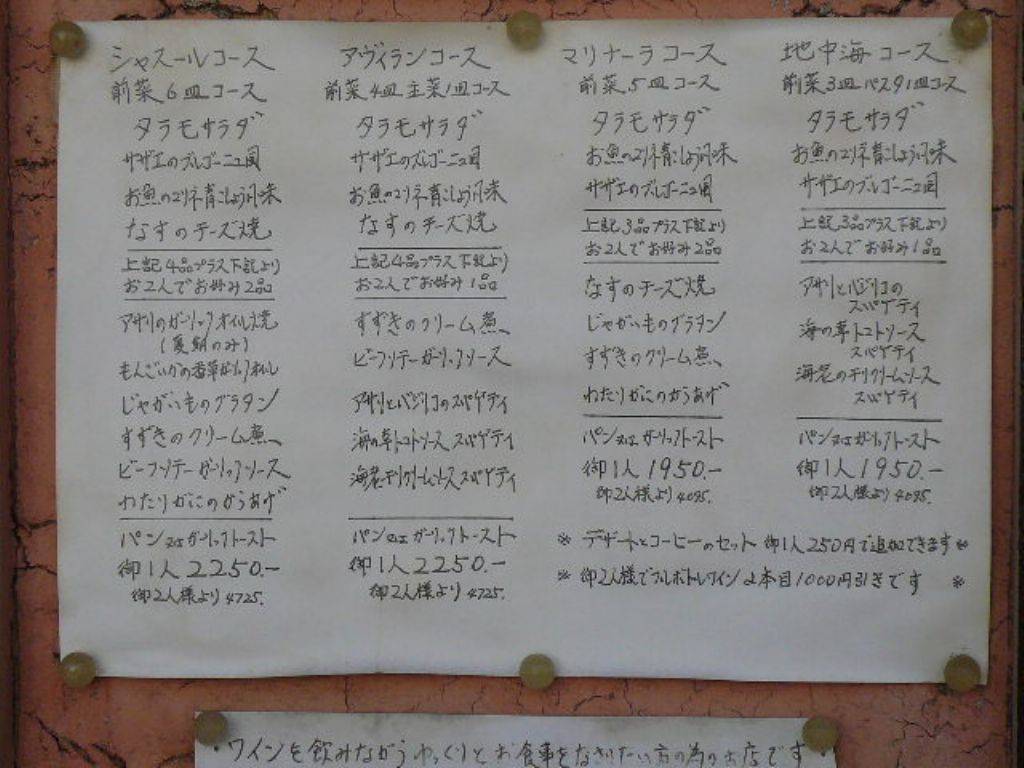 シャスールコース
前菜6皿コース
タラモサラダ
サザエのブルゴーニュ風
お魚のマリネ青こしょう風味
なすのチーズ焼
上記4品プラス下記より
お2人でお好み2品
アサリのガーリックオイル焼
(夏期のみ)
もんごいかの香草ガーリックオイル
じゃがいものグラタン
すずきのクリーム煮
ビーフソテーガーリックソース
わたりがにのからあげ
パン又はガーリックトースト
御1人2250.-
御2人様より4725.
アヴィランコース
前菜4皿主菜1皿コース
タラモサラダ
サザエのブルゴーニュ風
お魚のマリネ青こしょう風味
なすのチーズ焼
上記4品プラス下記より
お2人でお好み1品
すずきのクリーム煮
ビーフソテーガーリックソース
アサリとバジリコのスパゲティ
海の幸トマトソーススパゲティ
海老のチリクリームソーススパゲティ
パン又はガーリックトースト
御1人2250.-
御2人様より4725.
マリナーラコース
前菜5皿コース
タラモサラダ
お魚のマリネ青こしょう風味
サザエのブルゴーニュ風
上記3品プラス下記より
お2人でお好み2品
なすのチーズ焼
じゃがいものグラタン
すずきのクリーム煮
わたりがにのからあげ
パン又はガーリックトースト
御1人1950.-
御2人様より4095.
地中海コース
前菜3皿パスタ1皿コース
タラモサラダ
お魚のマリネ青こしょう風味
サザエのブルゴーニュ風
上記3品プラス下記より
お2人でお好み1品
アサリとバジリコの
スパゲティ
海の幸トマトソース
スパゲティ
海老のチリクリームソース
スパゲティ
パン又はガーリックトースト
御1人1950.-
御2人様より4095.
※ デザートとコーヒーのセット 御1人250円で追加できます※
※ 御2人様でフルボトルワイン1本目1000円引きです ※
・ワインを飲みながらゆっくりとお食事をなさりたい方の為のお店です